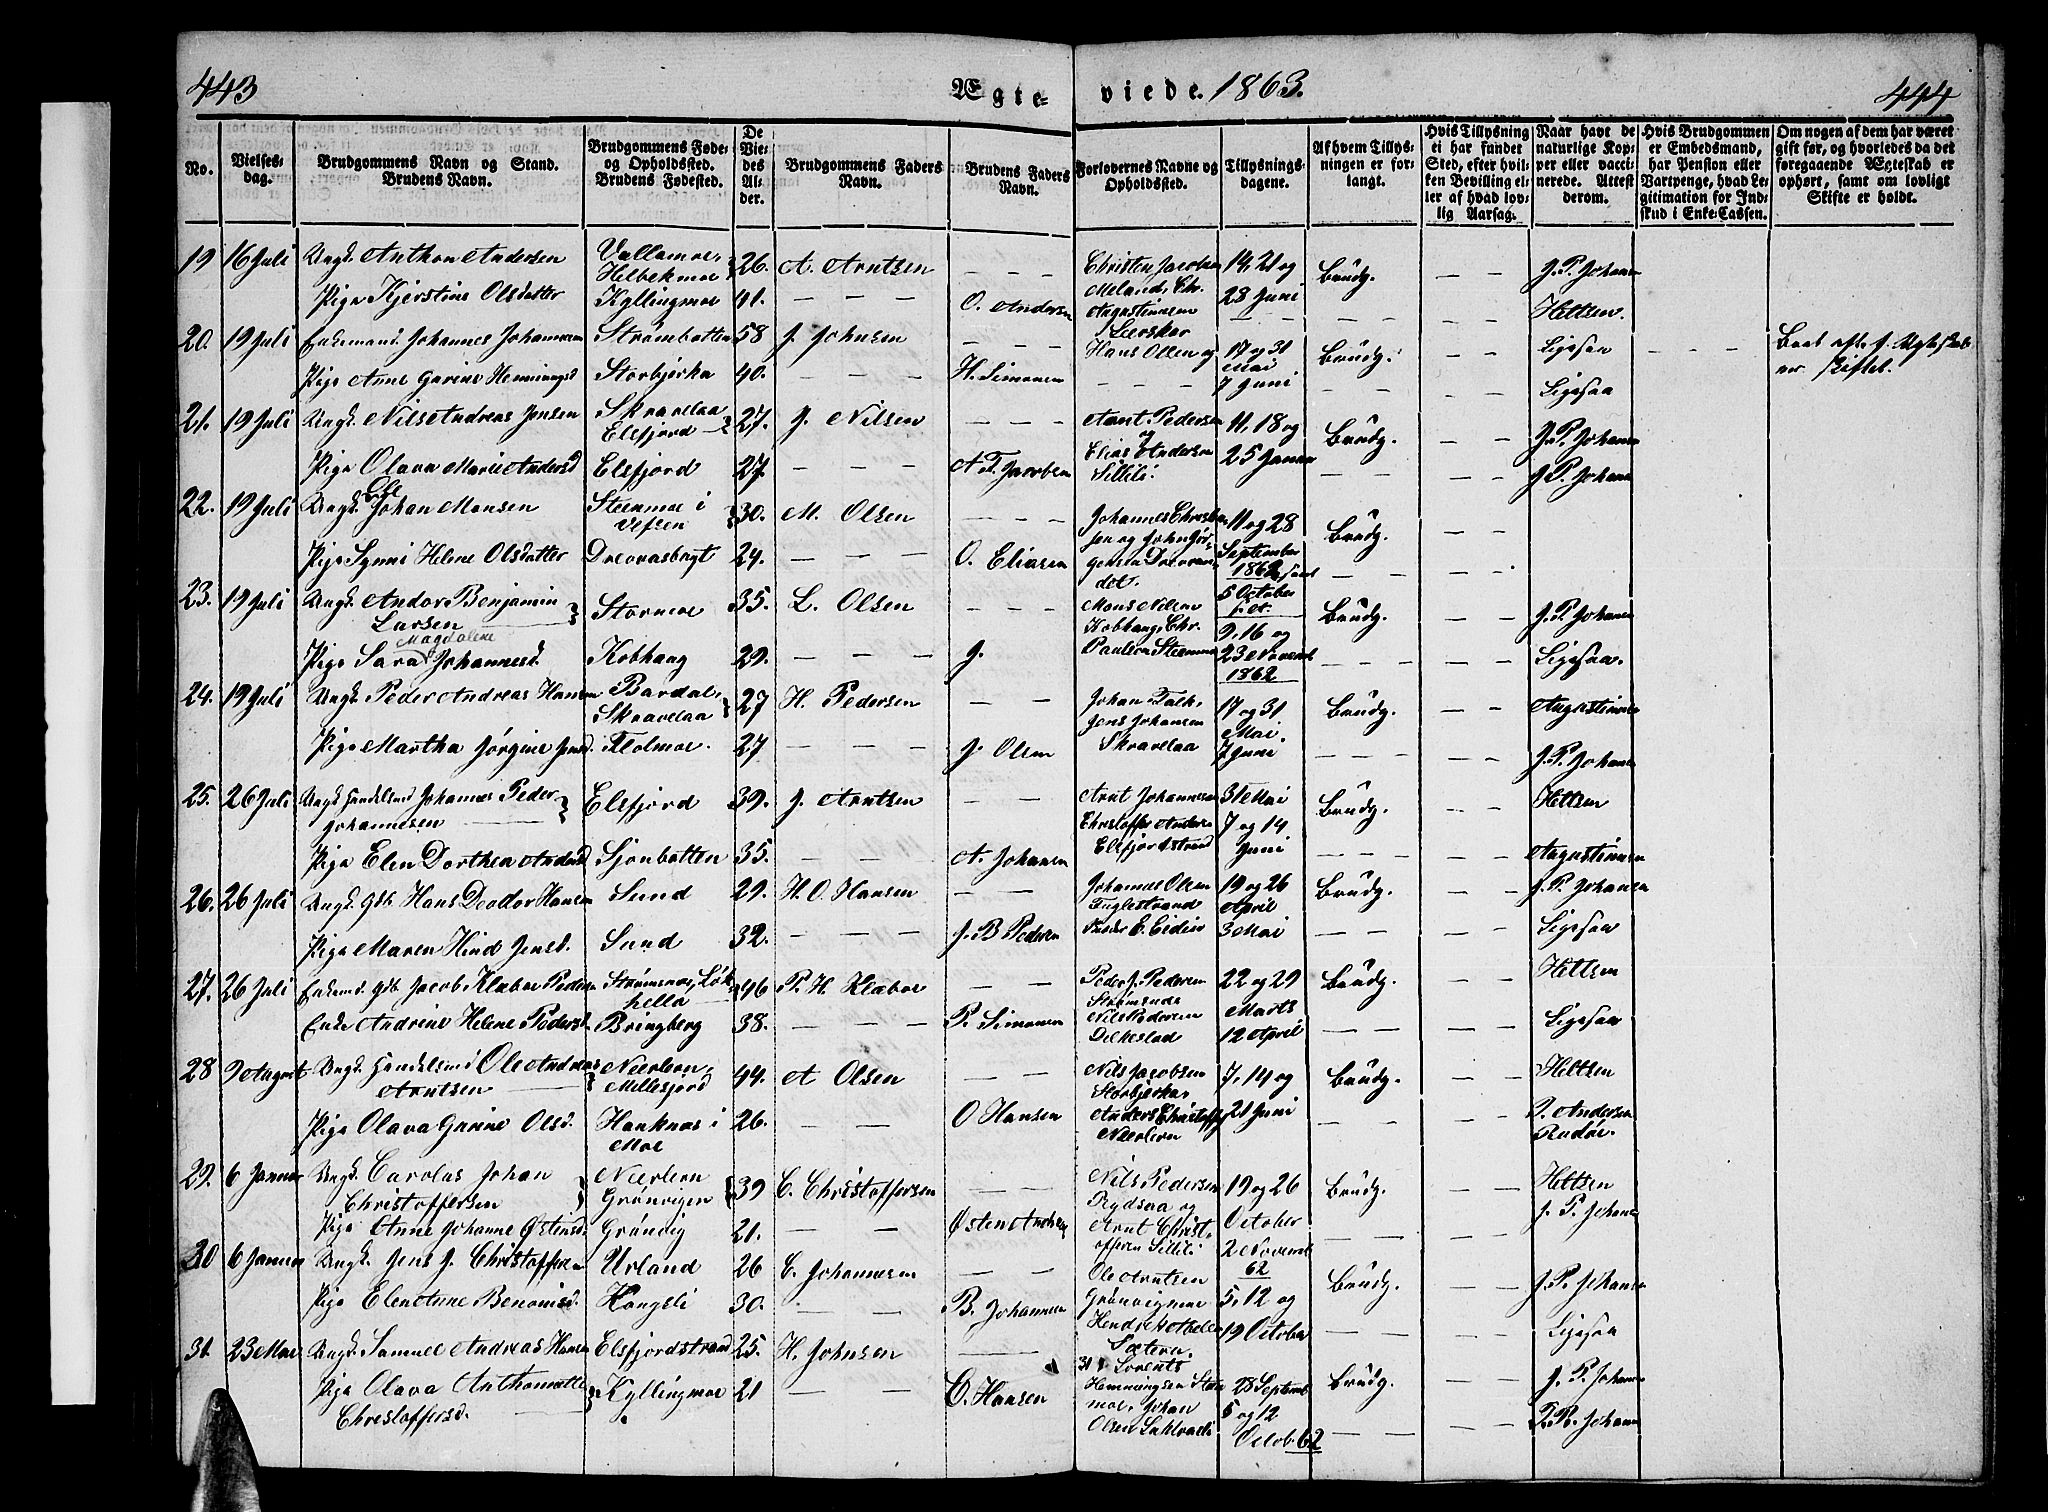 443
Ægte-
viede. 1863.
444
No.
Vielses-
dag.
Brudgommens Navn og Stand.
Brudens Navn.
Brudgommens Føde-
og Opholdssted.
Brudens Fødested.
De
Vie-
des
Al-
der.
Brudgommens Faders
Navn.
Brudens Faders
Navn.
Forlovernes Navne og
Opholdssted.
Tillysnings-
dagene.
Af hvem Tillys-
ningen er for-
langt.
Hvis Tillysning
ei har fundet
Sted, efter hvil-
ken Bevilling el-
ler af hvad lov-
lig Aarsag.
Naar havt de
naturlige Kop-
per eller vacci-
nerede. Attest
derom.
Hvis Brudgommen
er Embedsmand,
har Pension eller
Vartpenge, hvad Le-
gitimation for Ind-
skud i Enke-Cassen.
Om nogen af dem har været
gift før, og hvorledes da det
foregaaende Ægteskab er
ophørt, samt om lovligt
Skifte er holdt.
19 16 Juli Ungk. Anthon Andersen Vallamoe, Helbekmoe 26. A. Arntsen — — — Christen Jacobsen 14, 21 og Brudg. — — J. P. Johansen
Pige Kjerstine Olsdatter Kyllingmoe 41. — — — O. Andersen Meland, Chr. Augustinusen Leerskar 28 Juni — — Heltzen.
20. 19 Juli Enkemand Johannes Johannesen Strømbotten 58 J. Johnsen — — — Hans Olsen og 17 og 31 Mai Brudg. — — Ligesaa — — —
Pige Anne Garine Hemmingsd Storbjerka 40. — — — H. Simonsen — — — 7 Juni — — Ligesaa
21. 19 Juli Ungk. Nils Andreas Jensen Skravelaa Elsfjord 27. J. Nilsen — — — Arnt Pedersen og 11, 18 og Brudg. — — J. P. Johansen
Pige Olava Marie Andersd Elsfjord 27. — — — A. T. Jacobsen Elias Andersen Sillili. 25 Januar — — J. P. Johansen
22. 19 Juli Ungk. Ole Johan Monsen Steenmoe i Vefsen 30. M. Olsen — — — 11 og 28 Brudg. — —
Pige Synni Helene Olsdatter Drevvasbygt 24. — — — O. Eliasen September 1862 samt 5 October — — —
23. 19 Juli Ungk. Andor Benjamin Larsen Stormoe 35. L. Olsen — — — Mons Nilsen Kobhaug, Chr. 9, 16 og Brudg. — — J. P. Johansen
Pige Sara Magdalene Johannesd. Kobhaug 29. — — — J. Paulsen Steenmoe 23 Novemb. 1862 — — — Ligesaa.
24. 19 Juli Ungk. Peder Andreas Hansen Bardal, Skravelaa 27 H. Pedersen — — Johan Falk, Jens Johansen 17 og 31 Mai. Brudg. — — Augustinusen
Pige Martha Jørgine Jensd. Flolmoe. 27 — — — J. Olsen Skravelaa 7 Juni — — — J. P. Johansen
25. 26 Juli Ungk. Handelsmd Johannes Peder Johannesen Elsfjord 39. J. Arntsen — — Arnt Johannesen 31 Mai Brudg. — — Heltzen
Pige Elen Dorthea Andersd Sjonbotten 35. — — — A. Johansen Christoffer Andersen Elsfjordstrand 7 og 14 Juni — — — Augustinusen
26. 26 Juli Ungk. Gdb. Hans Deodor Hansen Sund 29. H. O. Hansen — — Johannes Olsen Fuglestrand 19 og 26 April Brudg. — — J. P. Johansen
Pige Maren Hind Jensd. Sund 32. — — — J. B. Pedersen 3 Mai — — — Ligesaa
27. 26 Juli Enkemd. Gdb. Jacob Klæboe Pedersen 46 P. H. Klæboe — — Peder J. Pedersen Strømsnæs 22 og 29 Brudg. — — Heltzen
Enke Andrine Helene Pedersd. Bringberg 38. — — — P. Simonsen Nils Pedersen Dilkestad Marts 12 April — — Ligesaa
28 9 August Ungk. Handelsmd Ole Andreas Arntsen Neerleon, Millesjord 44. A Olsen — — Nils Jacobsen Storbjerka, 7, 14 og Brudg. — — Heltzen
Pige Olava Garine Olsd. Hauknæs i Moe 26. — — — O Hansen Anders Christoffs Neerleon 21 Juni — — P. Andersen Rødøe.
29. 6 Januar Ungk. Carolus Johan Christoffersen Neerleon Grønvigen 39 C. Christoffersen — — Nils Pedersen Rydsaa og 19 og 26 Brudg. — — Heltzen
Pige Anne Johanne Østensd. Grønvig 21. — — Østen Andersen Arnt Christoffersen Sillili October 2 Novemb. 62 — — — J. P. Johansen
30 6 Januar Ungk. Jens J. Christoffersen Urland 26 C. Johannesen — — Ole Arntsen Grønvigmoe 5, 12 og Brudg. — — J. P. Johansen
Pige Elen Anne Benonisd. Hongsli 30. — — B. Johannesen 19 October — — — Ligesaa
31. 23 Mai Ungk. Samuel Andreas Hansen Elsfjordstrand 25. H. Johnsen — — 31. Lorents Hemmingsen 28 Septemb Brudg. — — J. P. Johansen
Pige Olava Anthonette Christoffersd. Kyllingmoe 21 — — C. Hansen Johan Olsen 5 og 12 Octob. 62 — — — J. P. Johansen